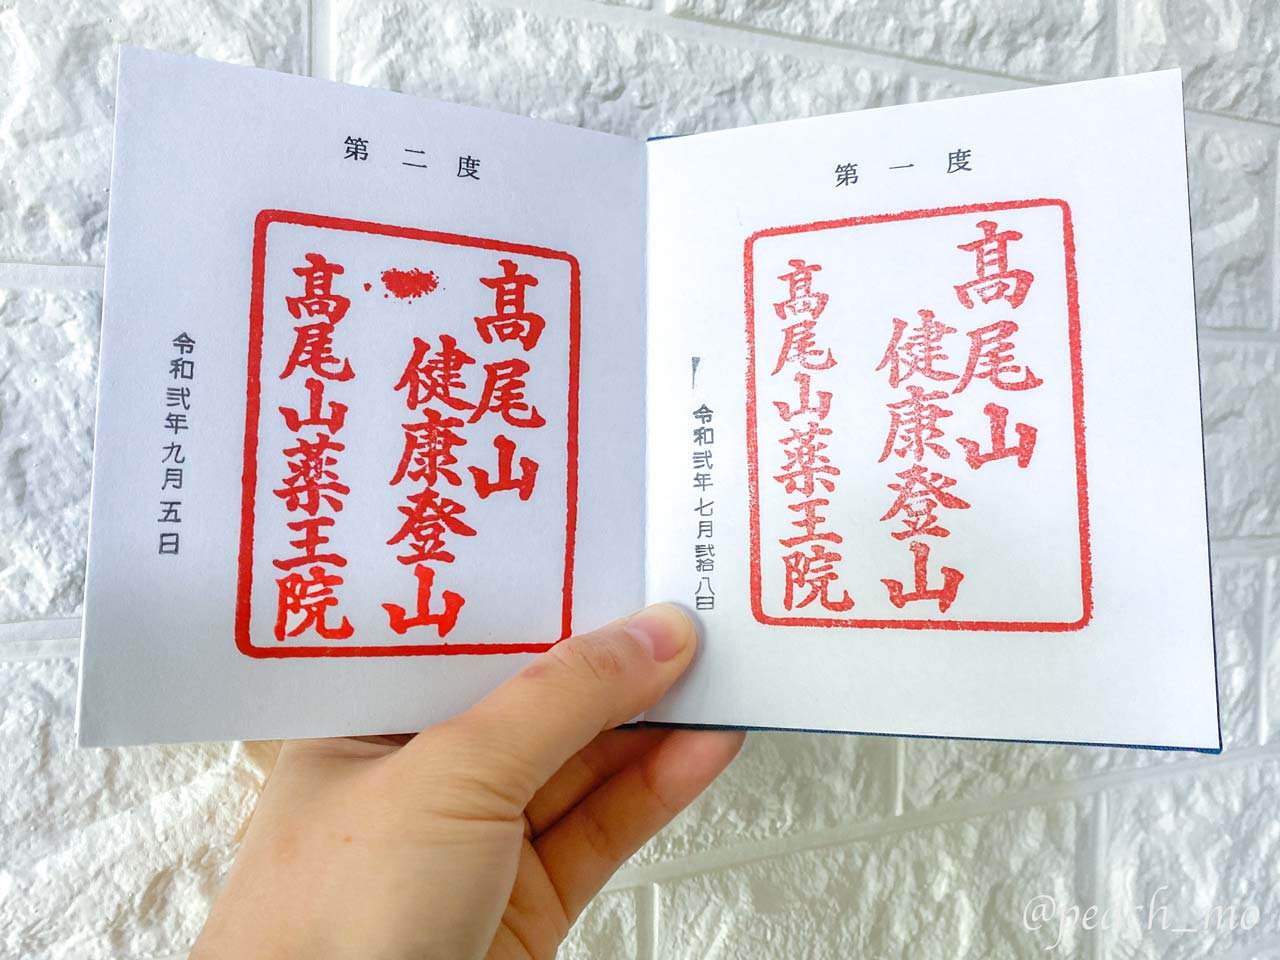 第一度
髙尾山
健康登山
髙尾山薬王院
令和弐年七月弐拾八日
第二度
髙尾山
健康登山
髙尾山薬王院
令和弐年九月五日
@peach_mo